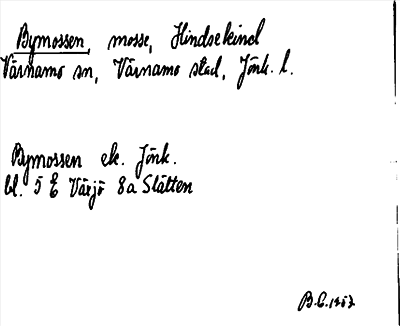 Bymossen, mosse, Hindsekind
Värnamo sn, Värnamo stad, Jönk. l.
Bymossen ek. Jönk.
bl. 5 E Växjö 8a Slätten